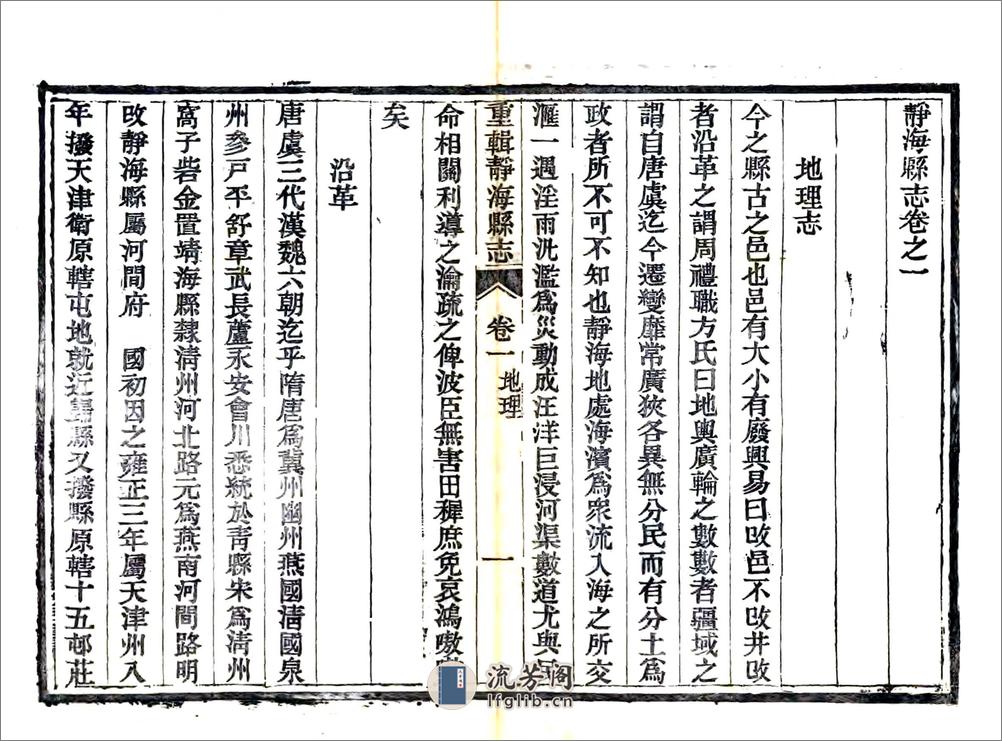 靜海縣志卷之一
地理志
今之縣古之邑也邑有大小有廢興易曰改邑不改井改
者沿革之謂周禮職方氏曰地輿廣輪之數數者疆域之
謂自唐虞迄今遷變靡常廣狹各異無分民而有分土爲
政者所不可不知也靜海地處海濱爲衆流入海之所交
滙一遇淫雨汎濫爲災動成汪洋巨浸河渠數道尤與
重輯靜海縣志 卷一 地理 一
命相關利導之瀹疏之俾波臣無害田穉庶免哀鴻嗷
矣
沿革
唐虞三代漢魏六朝迄乎隋唐爲冀州幽州燕國淸國泉
州參戸平舒章武長蘆永安會川悉統於靑縣宋爲淸州
窩子砦金置靖海縣隸淸州河北路元爲燕南河間路明
改靜海縣屬河間府 國初因之雍正三年屬天津州入
年撥天津衛原轄屯地就近歸縣又撥縣原轄十五邨莊
流芳阁
lfglib.cn